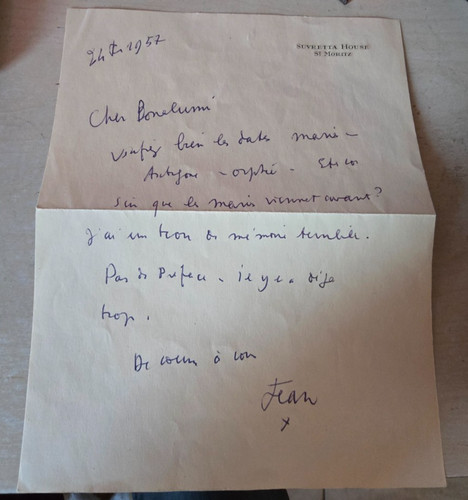 SUVRETTA HOUSE
ST. MORITZ
24 1957
Cher Bonalumi
Vérifiez bien les dates mariés –
Antigone – orphée. Etes vous
sûr que les mariés viennent avant?
J'ai un trou de mémoire terrible.
Pas de Préface. il y en a déjà
trop.
De cœur à vous
Jean